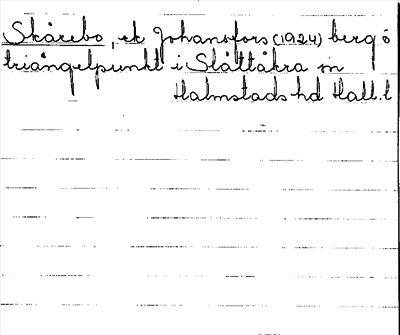 Skårebo, ek Johansfors (1924) berg ó
triangelpunkt i Slättåkra sn
Halmstads hd Hall. l